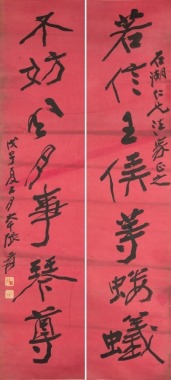 石湖仁兄法家正之
若信王侯等螻蟻
不妨風月事琴尊
戊子夏五月大千張爰